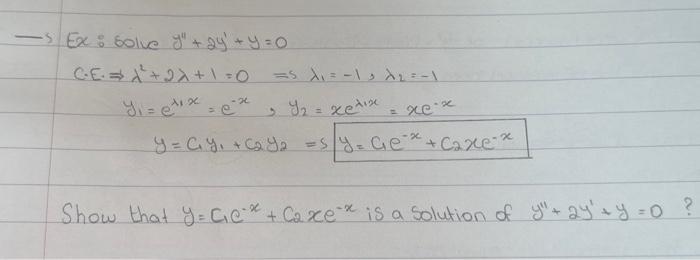 → Ex: Solve y" + 2y' + y = 0
C.E. ⇒ λ² + 2λ + 1 = 0 ⇒ λ₁ = -1, λ₂ = -1
y₁ = e^{λ₁x} = e^{-x}, y₂ = xe^{λ₁x} = xe^{-x}
y = C₁y₁ + C₂y₂ ⇒ y = C₁e^{-x} + C₂xe^{-x}
Show that y = C₁e^{-x} + C₂xe^{-x} is a solution of y" + 2y' + y = 0 ?